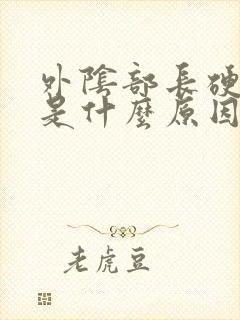 外陰部長硬
是什麼原因
老虎豆